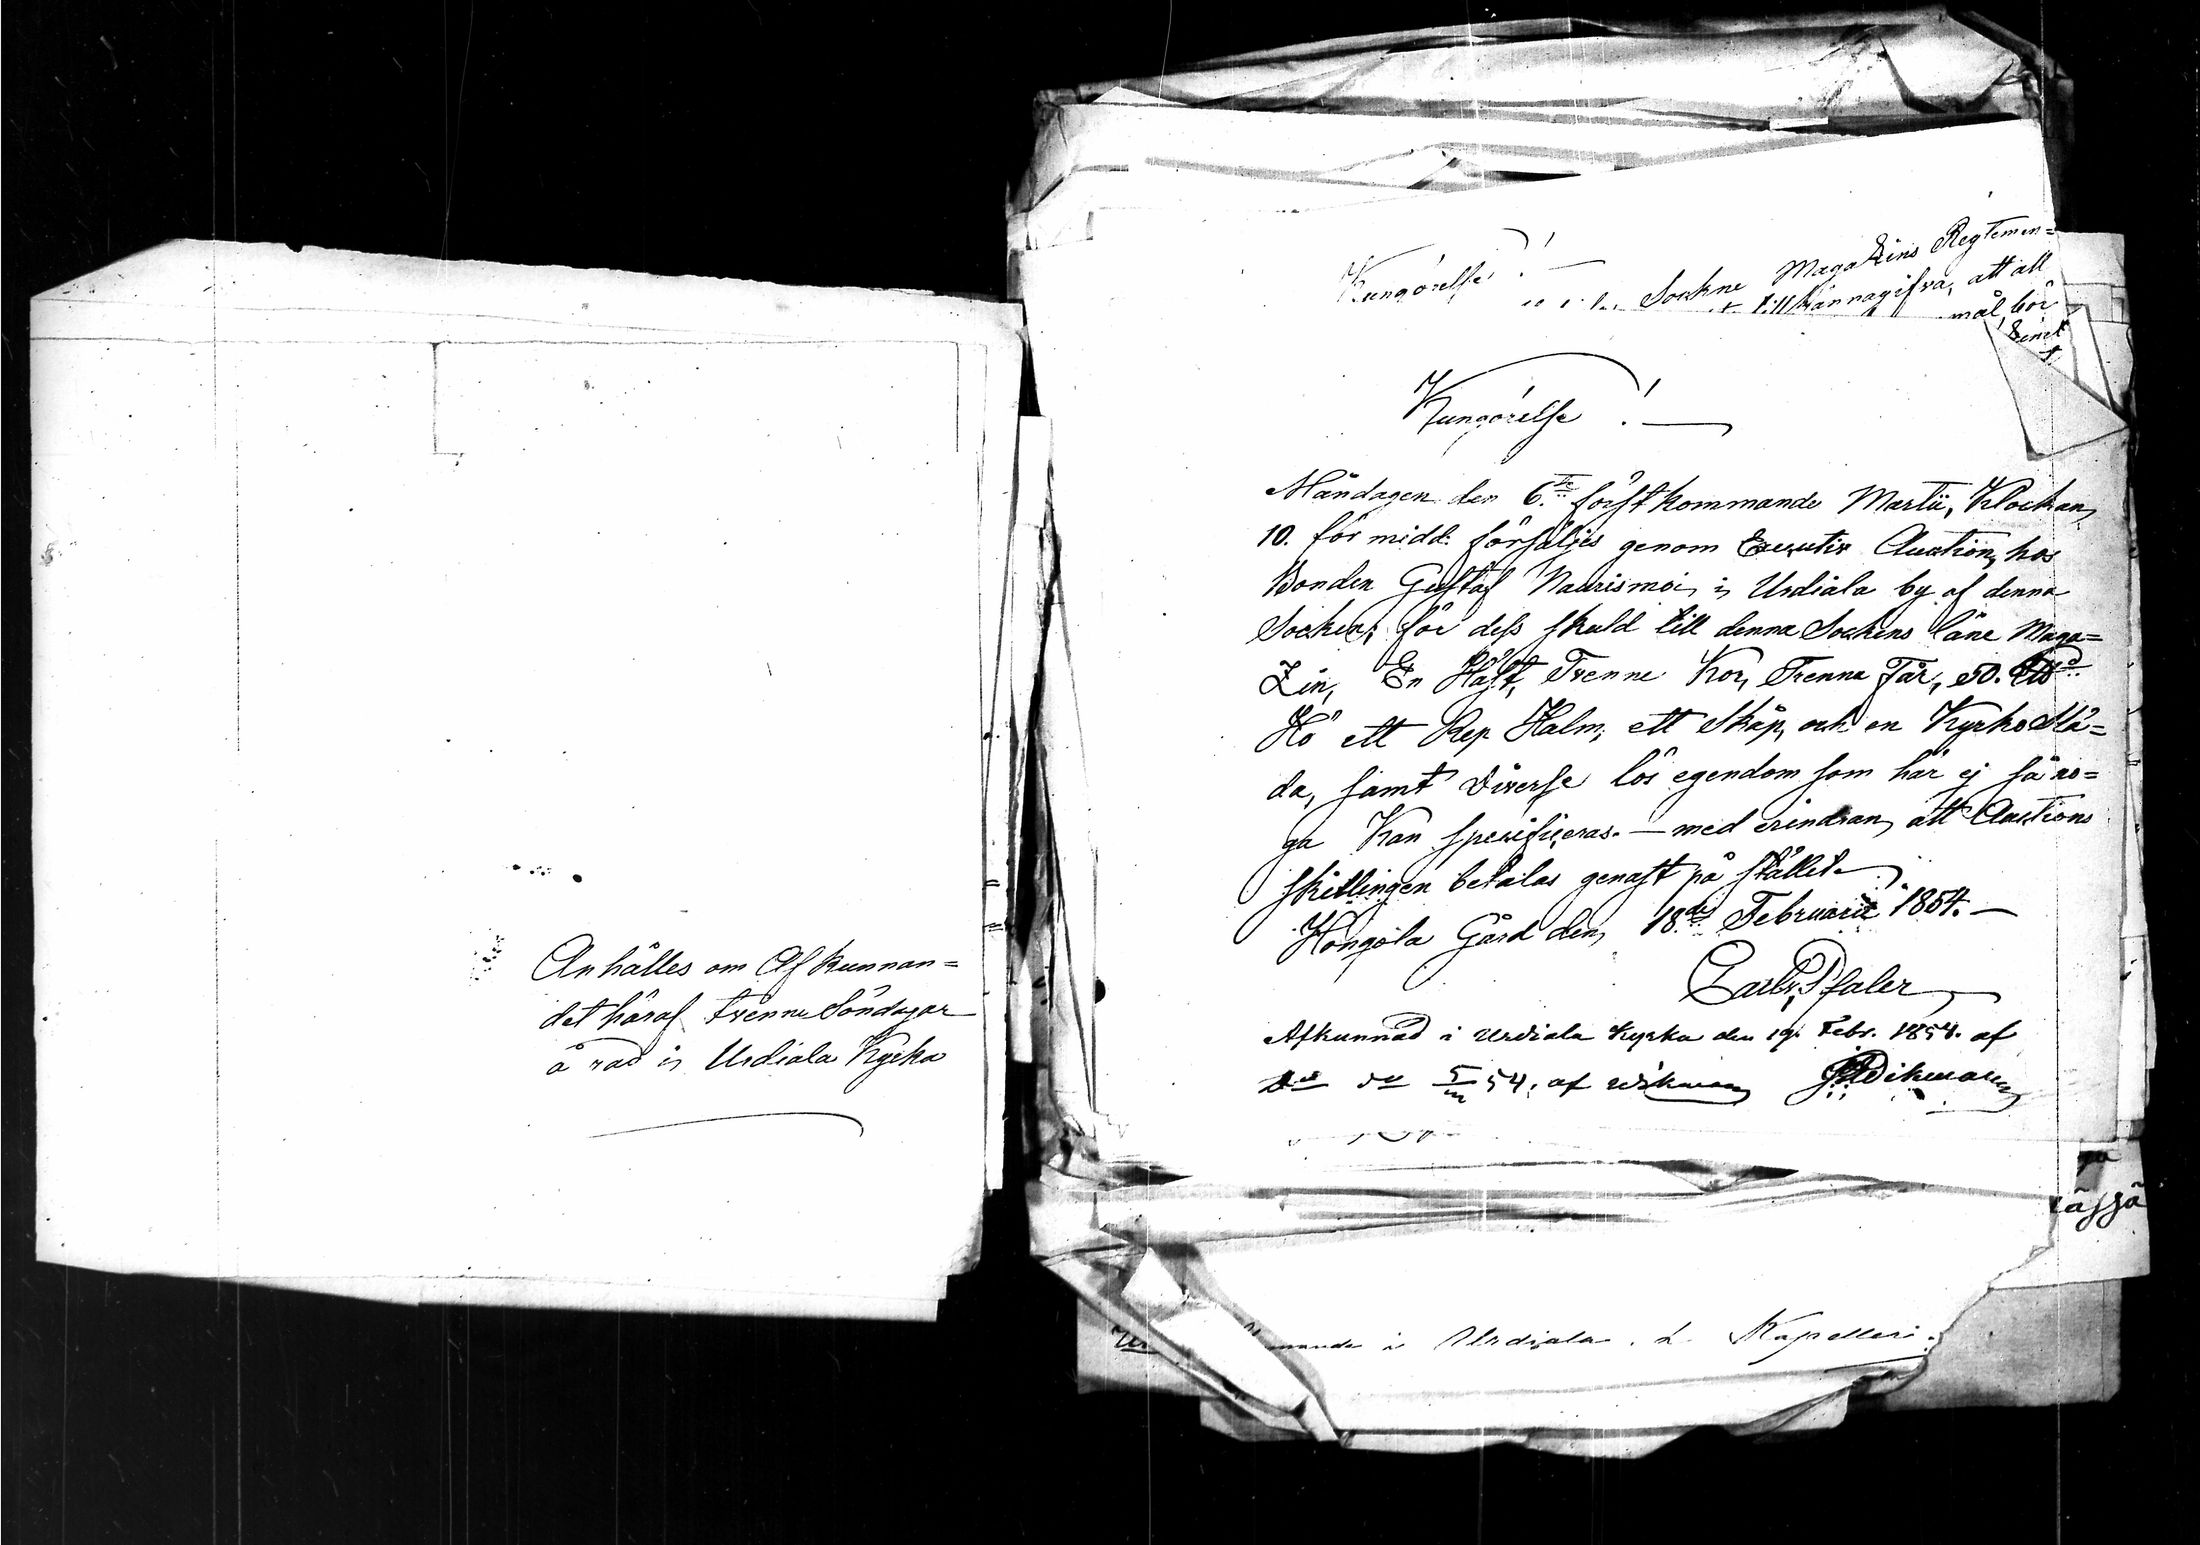 Anhålles om Afkunnan=
det häraf trenne Söndagar
å rad i Urdiala Kyrka
Kungörelse! —
Sockne Magazins Reglemen=
tillkännagifva, att all
mål, bör
Kungörelse! —
Måndagen den 6:te förstkommande Martii, Klockan
10. för midd: försäljes genom Executiv Auction, hos
Bonden Gustaf Naurismoi i Urdiala by af denna
Socken, för dess skuld till denna Sockens låne Maga=
Zin, En Häst, Trenne Kor, Trenna Får, 50. Lb
Hö ett Rep Halm, ett Skåp, och en Kyrko Slä=
da, samt diverse lös egendom som här ej så no=
ga kan specificeras. — med erindran, att Auctions
skillingen betalas genast på stället.
Hongola Gård den 18:de Februarii 1854. —
Carl v. Pfaler
Afkunnad i Urdiala Kyrka den 19. Febr. 1854. af
D:o d:o 5/3 54, af Wikman Wikman
ässä
i Urdiala. Kapelleri.